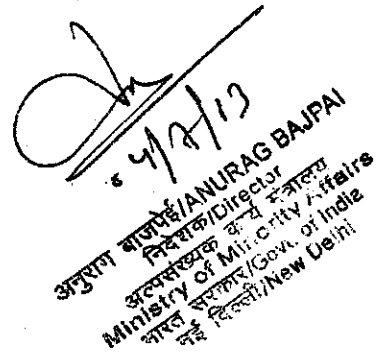 4/7/13
अनुराग बाजपेई/ANURAG BAJPAI
निदेशक/Director
अल्पसंख्यक कार्य मंत्रालय
Ministry of Minority Affairs
भारत सरकार/Govt. of India
नई दिल्ली/New Delhi